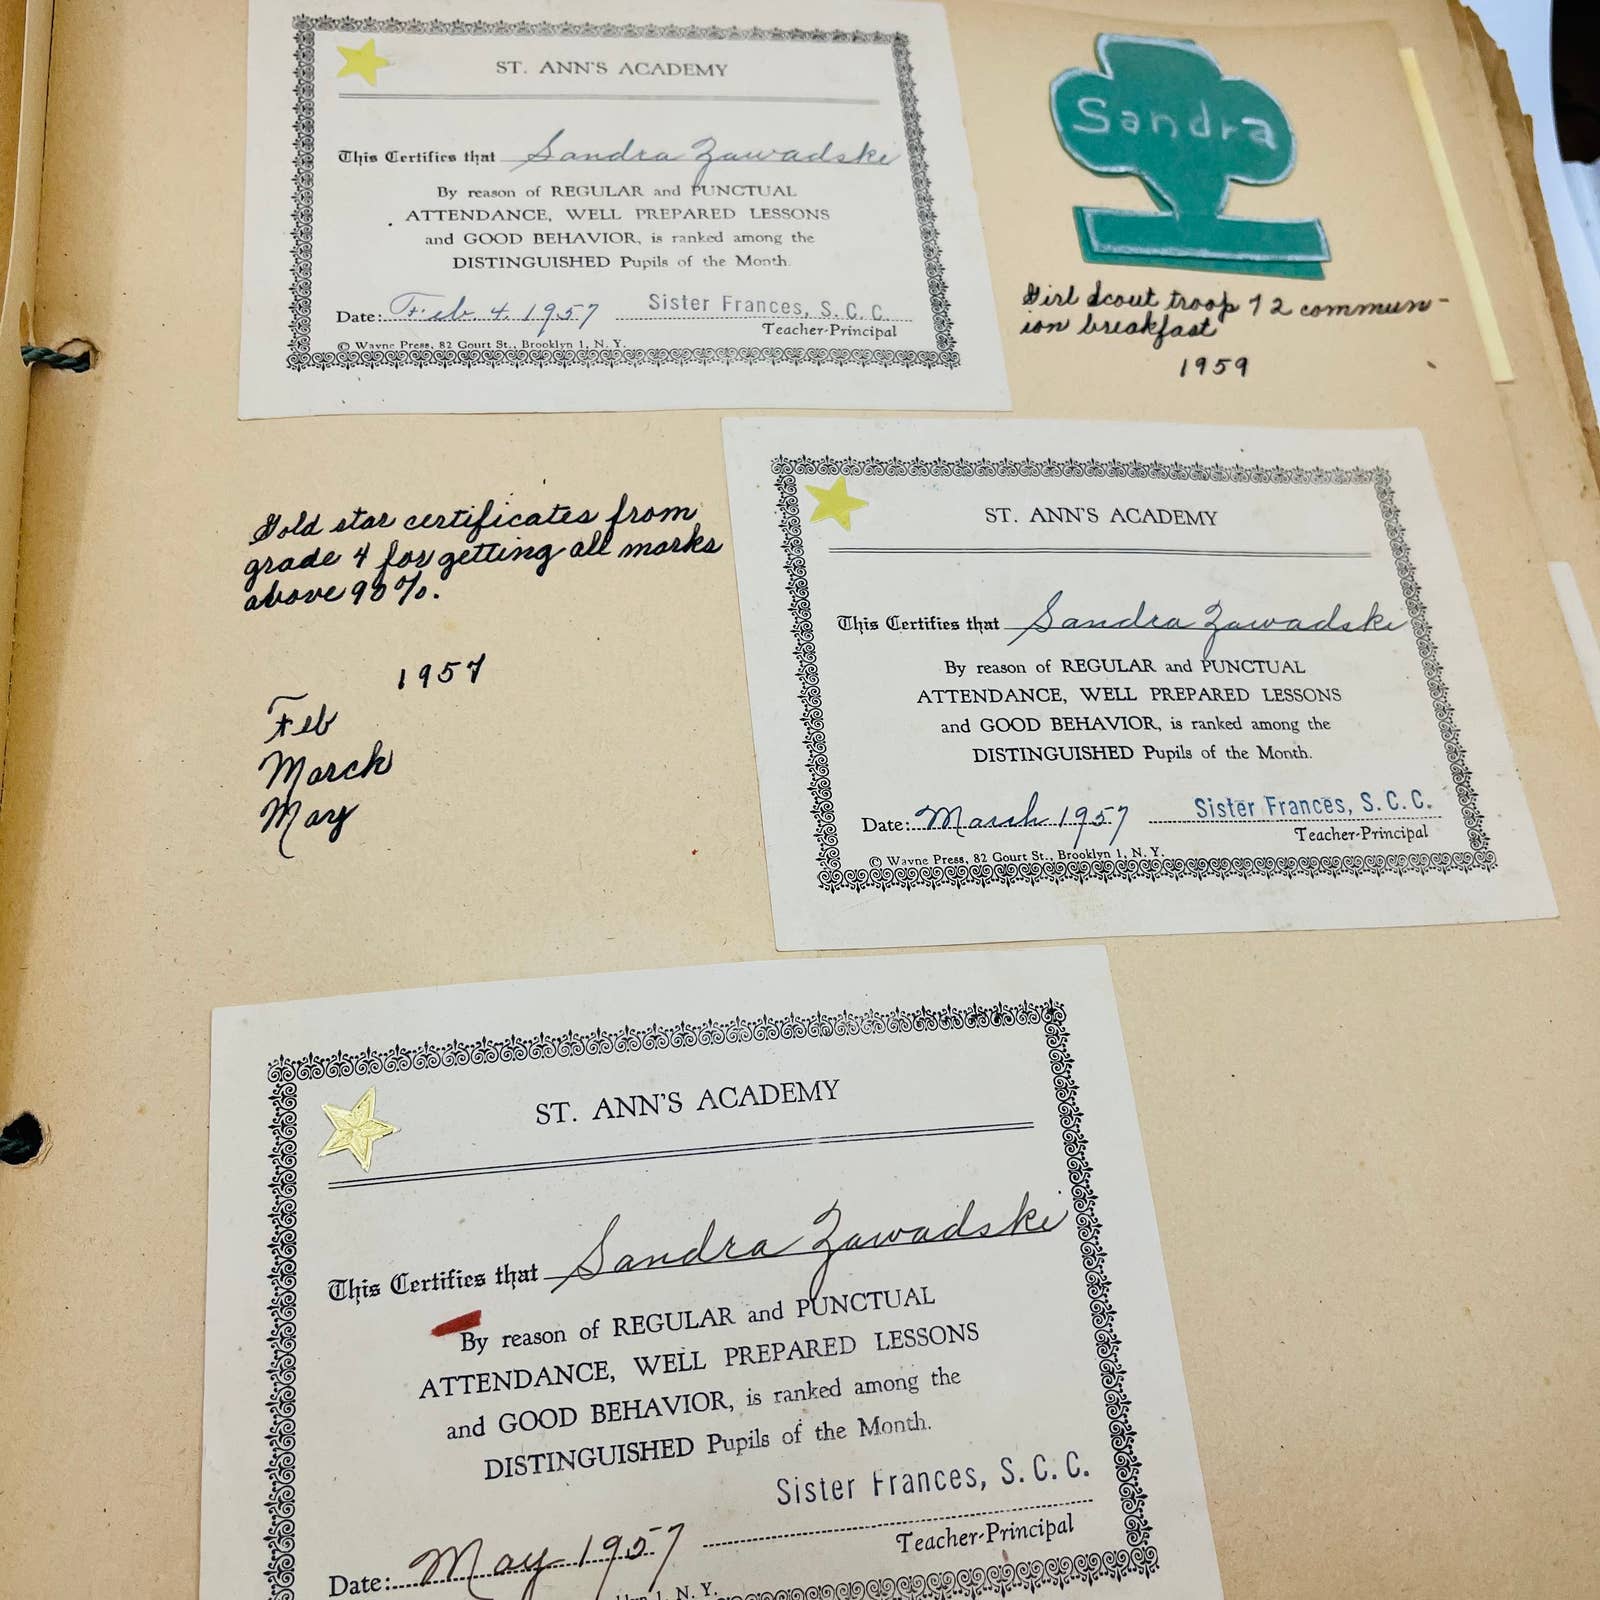 ST. ANN'S ACADEMY
This Certifies that Sandra Zawadski
By reason of REGULAR and PUNCTUAL
ATTENDANCE, WELL PREPARED LESSONS
and GOOD BEHAVIOR, is ranked among the
DISTINGUISHED Pupils of the Month.
Date: Feb. 4, 1957 Sister Frances, S. C. C.
Teacher-Principal
© Wayne Press, 82 Court St., Brooklyn 1, N. Y.
Sandra
Girl Scout troop 72 commun-
ion breakfast
1959
Gold star certificates from
grade 4 for getting all marks
above 90%.
1957
Feb
March
May
ST. ANN'S ACADEMY
This Certifies that Sandra Zawadski
By reason of REGULAR and PUNCTUAL
ATTENDANCE, WELL PREPARED LESSONS
and GOOD BEHAVIOR, is ranked among the
DISTINGUISHED Pupils of the Month.
Date: March 1957 Sister Frances, S. C. C.
Teacher-Principal
© Wayne Press, 82 Court St., Brooklyn 1, N. Y.
ST. ANN'S ACADEMY
This Certifies that Sandra Zawadski
By reason of REGULAR and PUNCTUAL
ATTENDANCE, WELL PREPARED LESSONS
and GOOD BEHAVIOR, is ranked among the
DISTINGUISHED Pupils of the Month.
Sister Frances, S. C. C.
Date: May 1957 Teacher-Principal
1, N. Y.